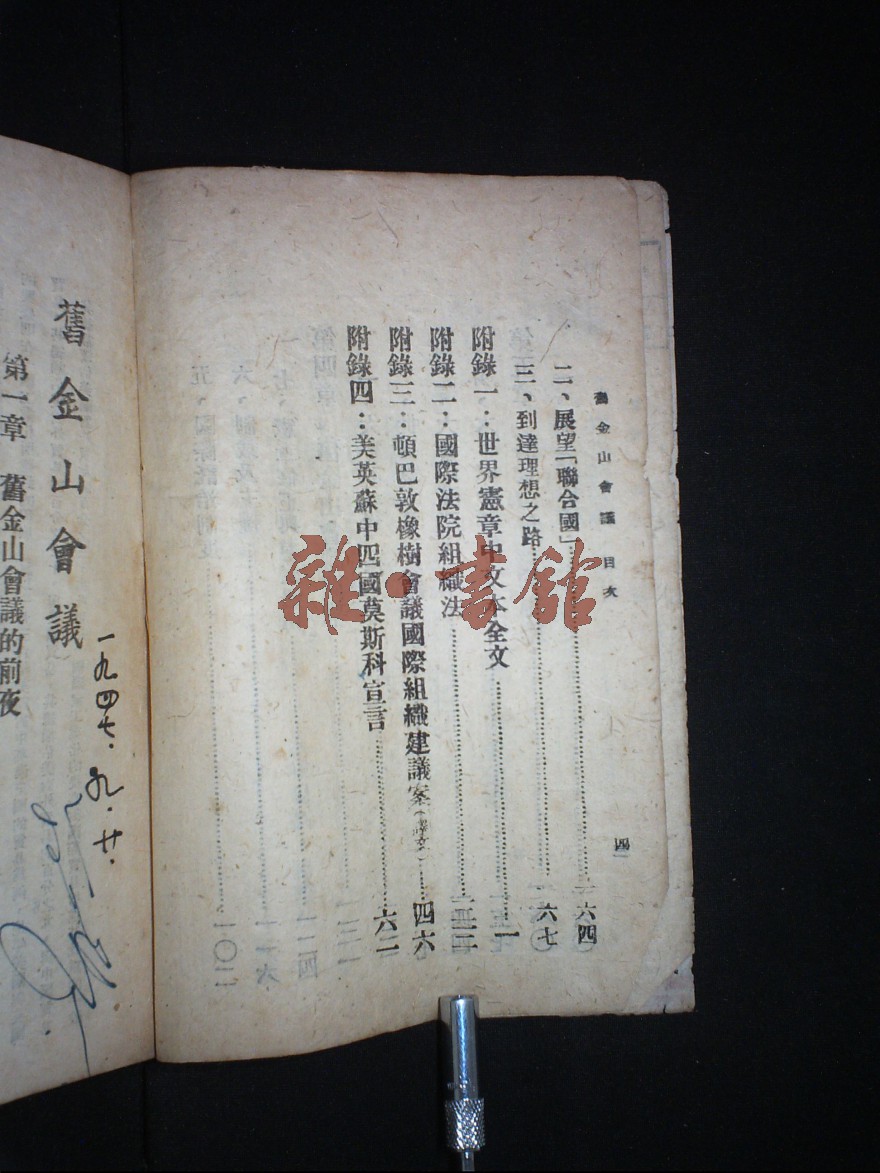 舊金山會議 目次
四
二、展望「聯合國」……一六四
三、到達理想之路……一六七
附錄一：世界憲章中文本全文……一
附錄二：國際法院組織法
附錄三：頓巴敦橡樹會議國際組織建議案（譯文）……四六
附錄四：美英蘇中四國莫斯科宣言……六二
舊金山會議
一九四七．九．廿．
第一章 舊金山會議的前夜
雜·書館